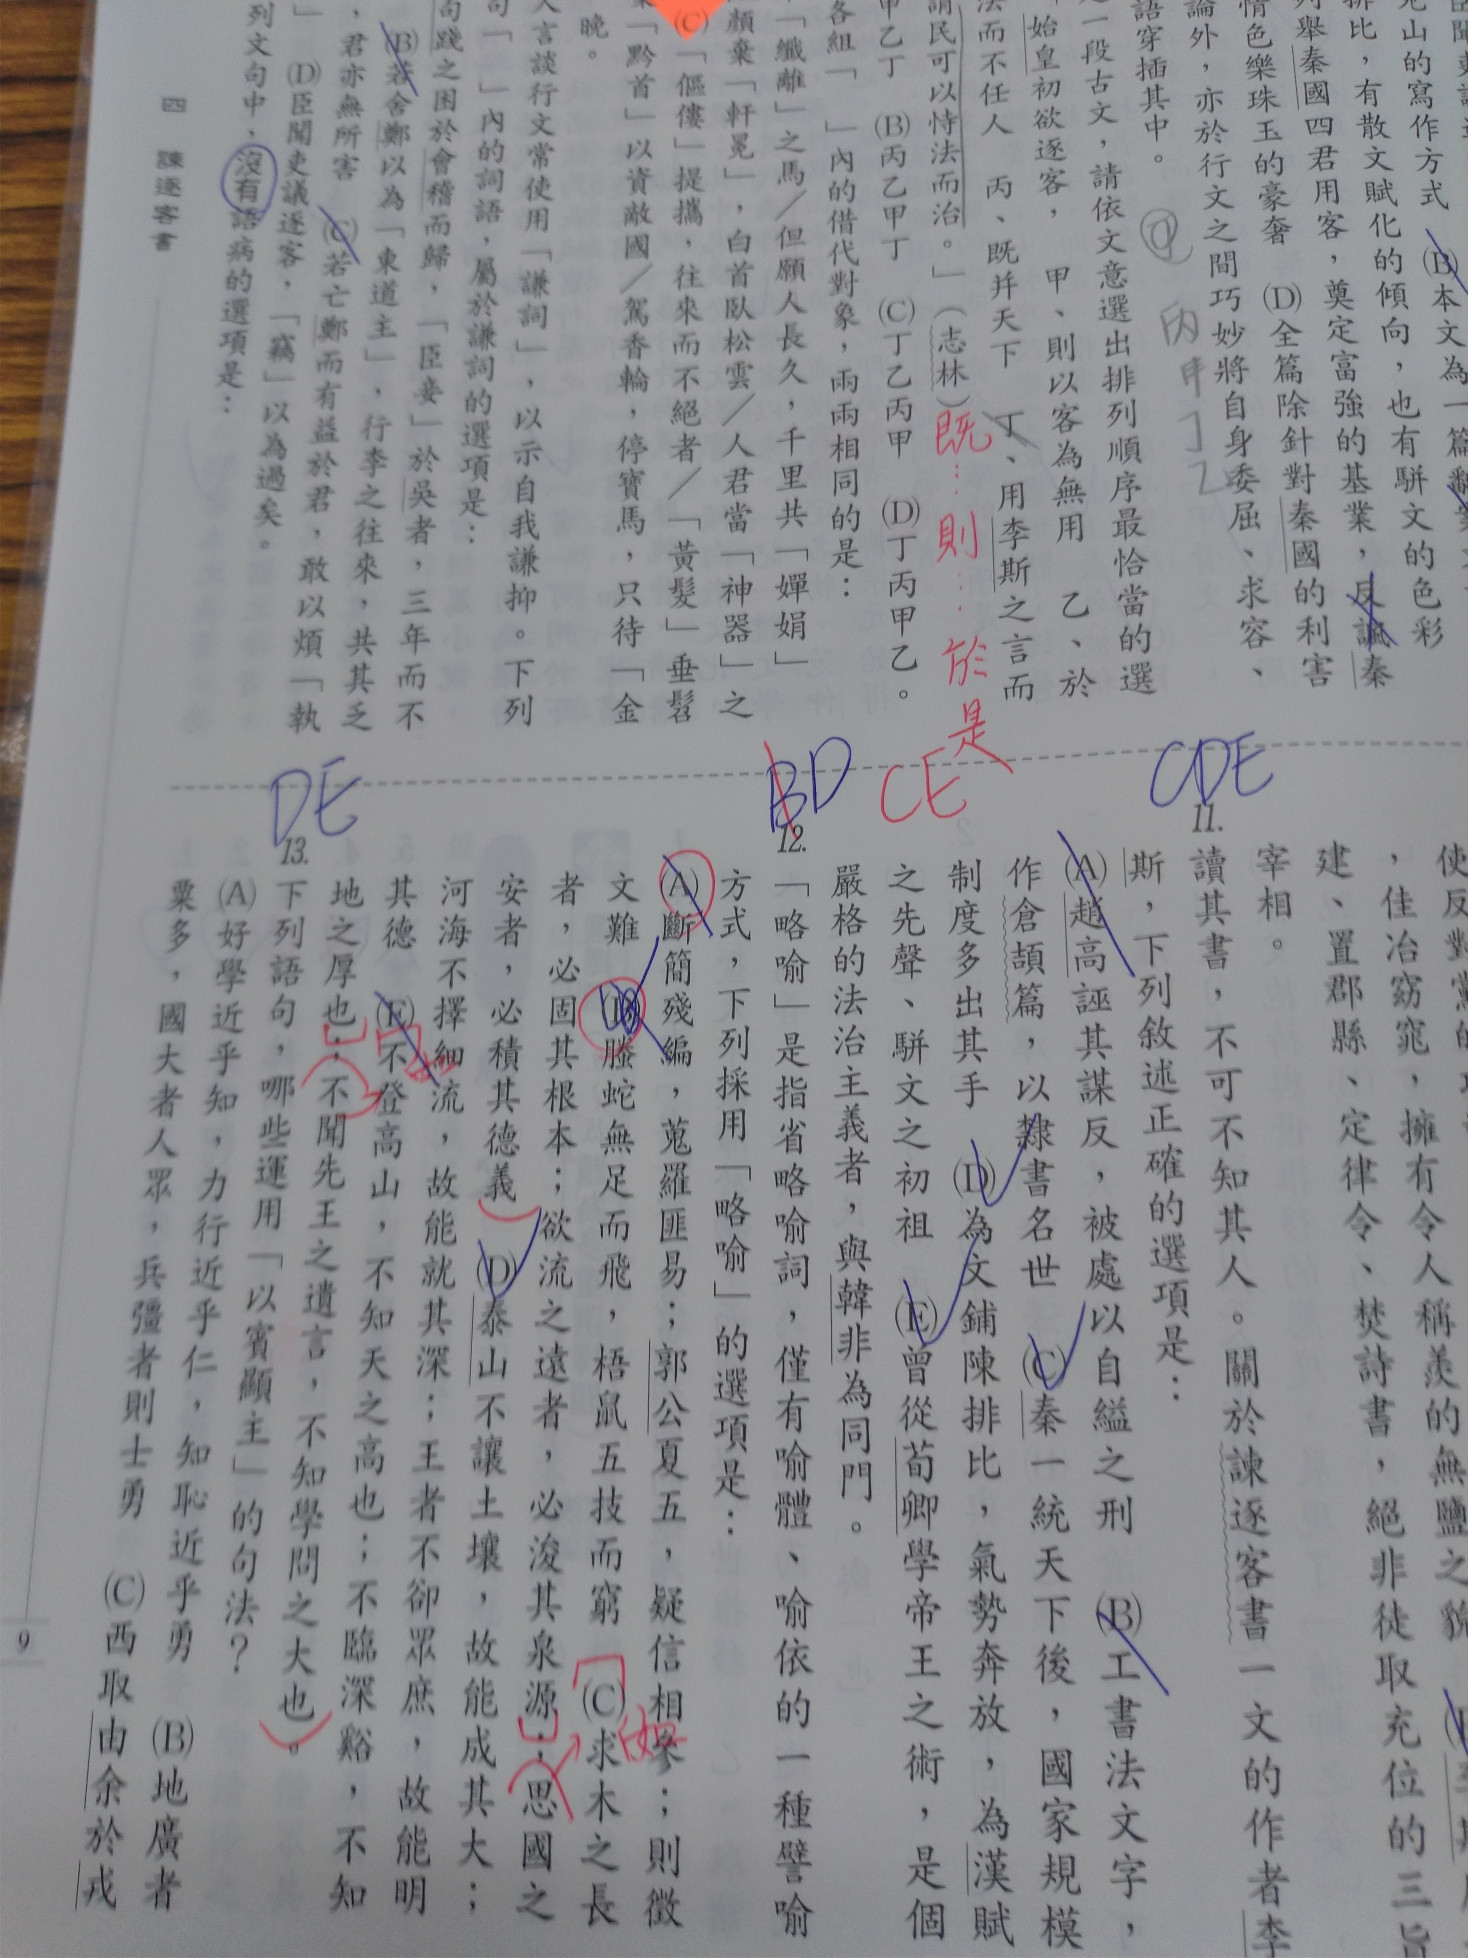 臣聞吏議逐
光山的寫作方式 (B)本文為一篇翻案文
排比,有散文賦化的傾向,也有駢文的色彩
列舉秦國四君用客,奠定富強的基業,反諷秦
情色樂珠玉的豪奢 (D)全篇除針對秦國的利害
論外,亦於行文之間巧妙將自身委屈、求容、
語穿插其中。
丙甲丁乙
一段古文,請依文意選出排列順序最恰當的選
「始皇初欲逐客, 甲、則以客為無用 乙、於
法而不任人 丙、既并天下 丁、用李斯之言而
謂民可以恃法而治。」(志林)
既…則…於是
甲乙丁 (B)丙乙甲丁 (C)丁乙丙甲 (D)丁丙甲乙。
各組「 」內的借代對象,兩兩相同的是:
「纖離」之馬/但願人長久,千里共「嬋娟」
顏棄「軒冕」,白首臥松雲/人君當「神器」之
(C)「傴僂」提攜,往來而不絕者/「黃髮」垂髫
棄「黔首」以資敵國/駕香輪,停寶馬,只待「金
晚。
人言談行文常使用「謙詞」,以示自我謙抑。下列
句「 」內的詞語,屬於謙詞的選項是:
句踐之困於會稽而歸,「臣妾」於吳者,三年而不
(B)若舍鄭以為「東道主」,行李之往來,共其乏
,君亦無所害 (C)若亡鄭而有益於君,敢以煩「執
」 (D)臣聞吏議逐客,「竊」以為過矣。
列文句中,沒有語病的選項是:
四 諫逐客書
使反對黨的
,佳冶窈窕,擁有令人稱羨的無鹽之貌
建、置郡縣、定律令、焚詩書,絕非徒取充位的三旨
宰相。
CDE
11.
讀其書,不可不知其人。關於諫逐客書一文的作者李
斯,下列敘述正確的選項是:
(A)趙高誣其謀反,被處以自縊之刑 (B)工書法文字,
作倉頡篇,以隸書名世 (C)秦一統天下後,國家規模
制度多出其手 (D)為文鋪陳排比,氣勢奔放,為漢賦
之先聲、駢文之初祖 (E)曾從荀卿學帝王之術,是個
嚴格的法治主義者,與韓非為同門。
BD CE
12.
「略喻」是指省略喻詞,僅有喻體、喻依的一種譬喻
方式,下列採用「略喻」的選項是:
(A)斷簡殘編,蒐羅匪易;郭公夏五,疑信相參;則徵
文難 (B)螣蛇無足而飛,梧鼠五技而窮 (C)求木之長
者,必固其根本;欲流之遠者,必浚其泉源;思國之
安者,必積其德義 (D)泰山不讓土壤,故能成其大;
河海不擇細流,故能就其深;王者不卻眾庶,故能明
其德 (E)不登高山,不知天之高也;不臨深谿,不知
地之厚也;不聞先王之遺言,不知學問之大也。
DE
13.
下列語句,哪些運用「以賓顯主」的句法?
(A)好學近乎知,力行近乎仁,知恥近乎勇 (B)地廣者
粟多,國大者人眾,兵彊者則士勇 (C)西取由余於戎
9